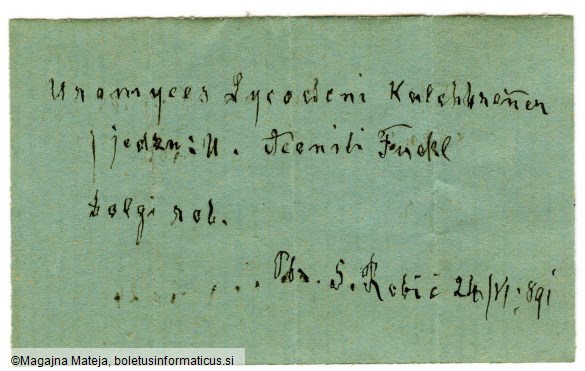 Uromyces Lycoctoni Kalchbrenner
jedn: U. Aconiti Fuckl
Dolgi rob.
Pbr. S. Robič 24/VI. 891
©Magajna Mateja, boletusinformaticus.si